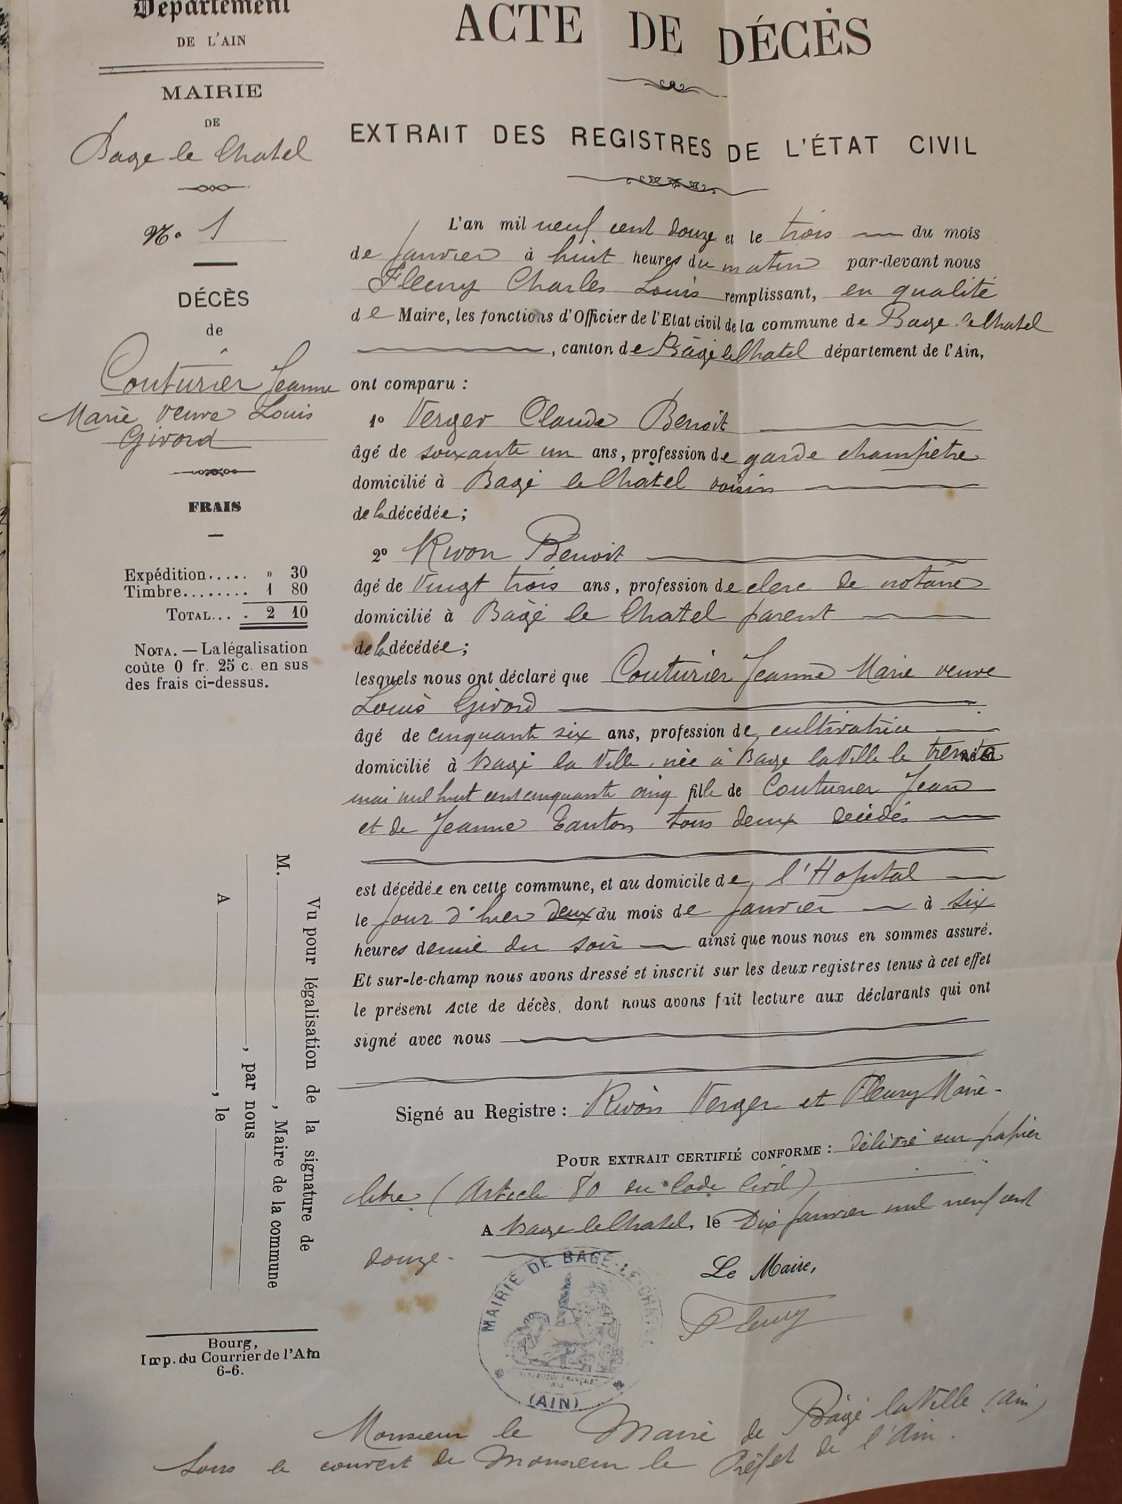 Département
DE L'AIN
MAIRIE
DE
Bage le Chatel
N.o 1
DÉCÈS
de
Couturier Jeanne
Marie veuve Louis
Girord
FRAIS
Expédition..... » 30
Timbre........ 1 80
TOTAL.... 2 10
NOTA. — La légalisation
coûte 0 fr. 25 c. en sus
des frais ci-dessus.
Vu pour légalisation de la signature de
M. , Maire de la commune
, par nous
A , le
Bourg,
Imp. du Courrier de l'Ain
6-6.
ACTE DE DÉCÈS
EXTRAIT DES REGISTRES DE L'ÉTAT CIVIL
L'an mil neuf cent douze et le trois du mois
de Janvier à huit heures du matin par-devant nous
Fleury Charles Louis remplissant, en qualité
de Maire, les fonctions d'Officier de l'Etat civil de la commune de Bage le Chatel
, canton de Bâgé le Chatel département de l'Ain,
ont comparu :
1o Verger Claude Benoit
âgé de soixante un ans, profession de garde champêtre
domicilié à Bagé le Châtel voisin
de la décédée ;
2o Rivon Benoit
âgé de vingt trois ans, profession de clerc de notaire
domicilié à Bâgé le Chatel parent
de la décédée ;
lesquels nous ont déclaré que Couturier Jeanne Marie veuve
Louis Girord
âgé de cinquante six ans, profession de cultivatrice
domicilié à Bagé la Ville née à Bage la Ville le trente
mai mil huit cent cinquante cinq fille de Couturier Jean
et de Jeanne Tanton tous deux décédés
est décédée en cette commune, et au domicile de l'Hopital
le jour d'hier deux du mois de Janvier à six
heures demie du soir ainsi que nous nous en sommes assuré.
Et sur-le-champ nous avons dressé et inscrit sur les deux registres tenus à cet effet
le présent Acte de décès, dont nous avons fait lecture aux déclarants qui ont
signé avec nous
Signé au Registre : Rivon Verger et Fleury Maire-
POUR EXTRAIT CERTIFIÉ CONFORME : délivré sur papier
libre (Article 80 du Code Civil)
A Bage le Chatel, le Dix Janvier mil neuf cent
douze-
Le Maire,
Fleury
MAIRIE DE BAGÉ-LE-CHATEL
(AIN)
Monsieur le Maire de Bâgé la Ville (Ain)
Sous le couvert de Monsieur le Préfet de l'Ain.